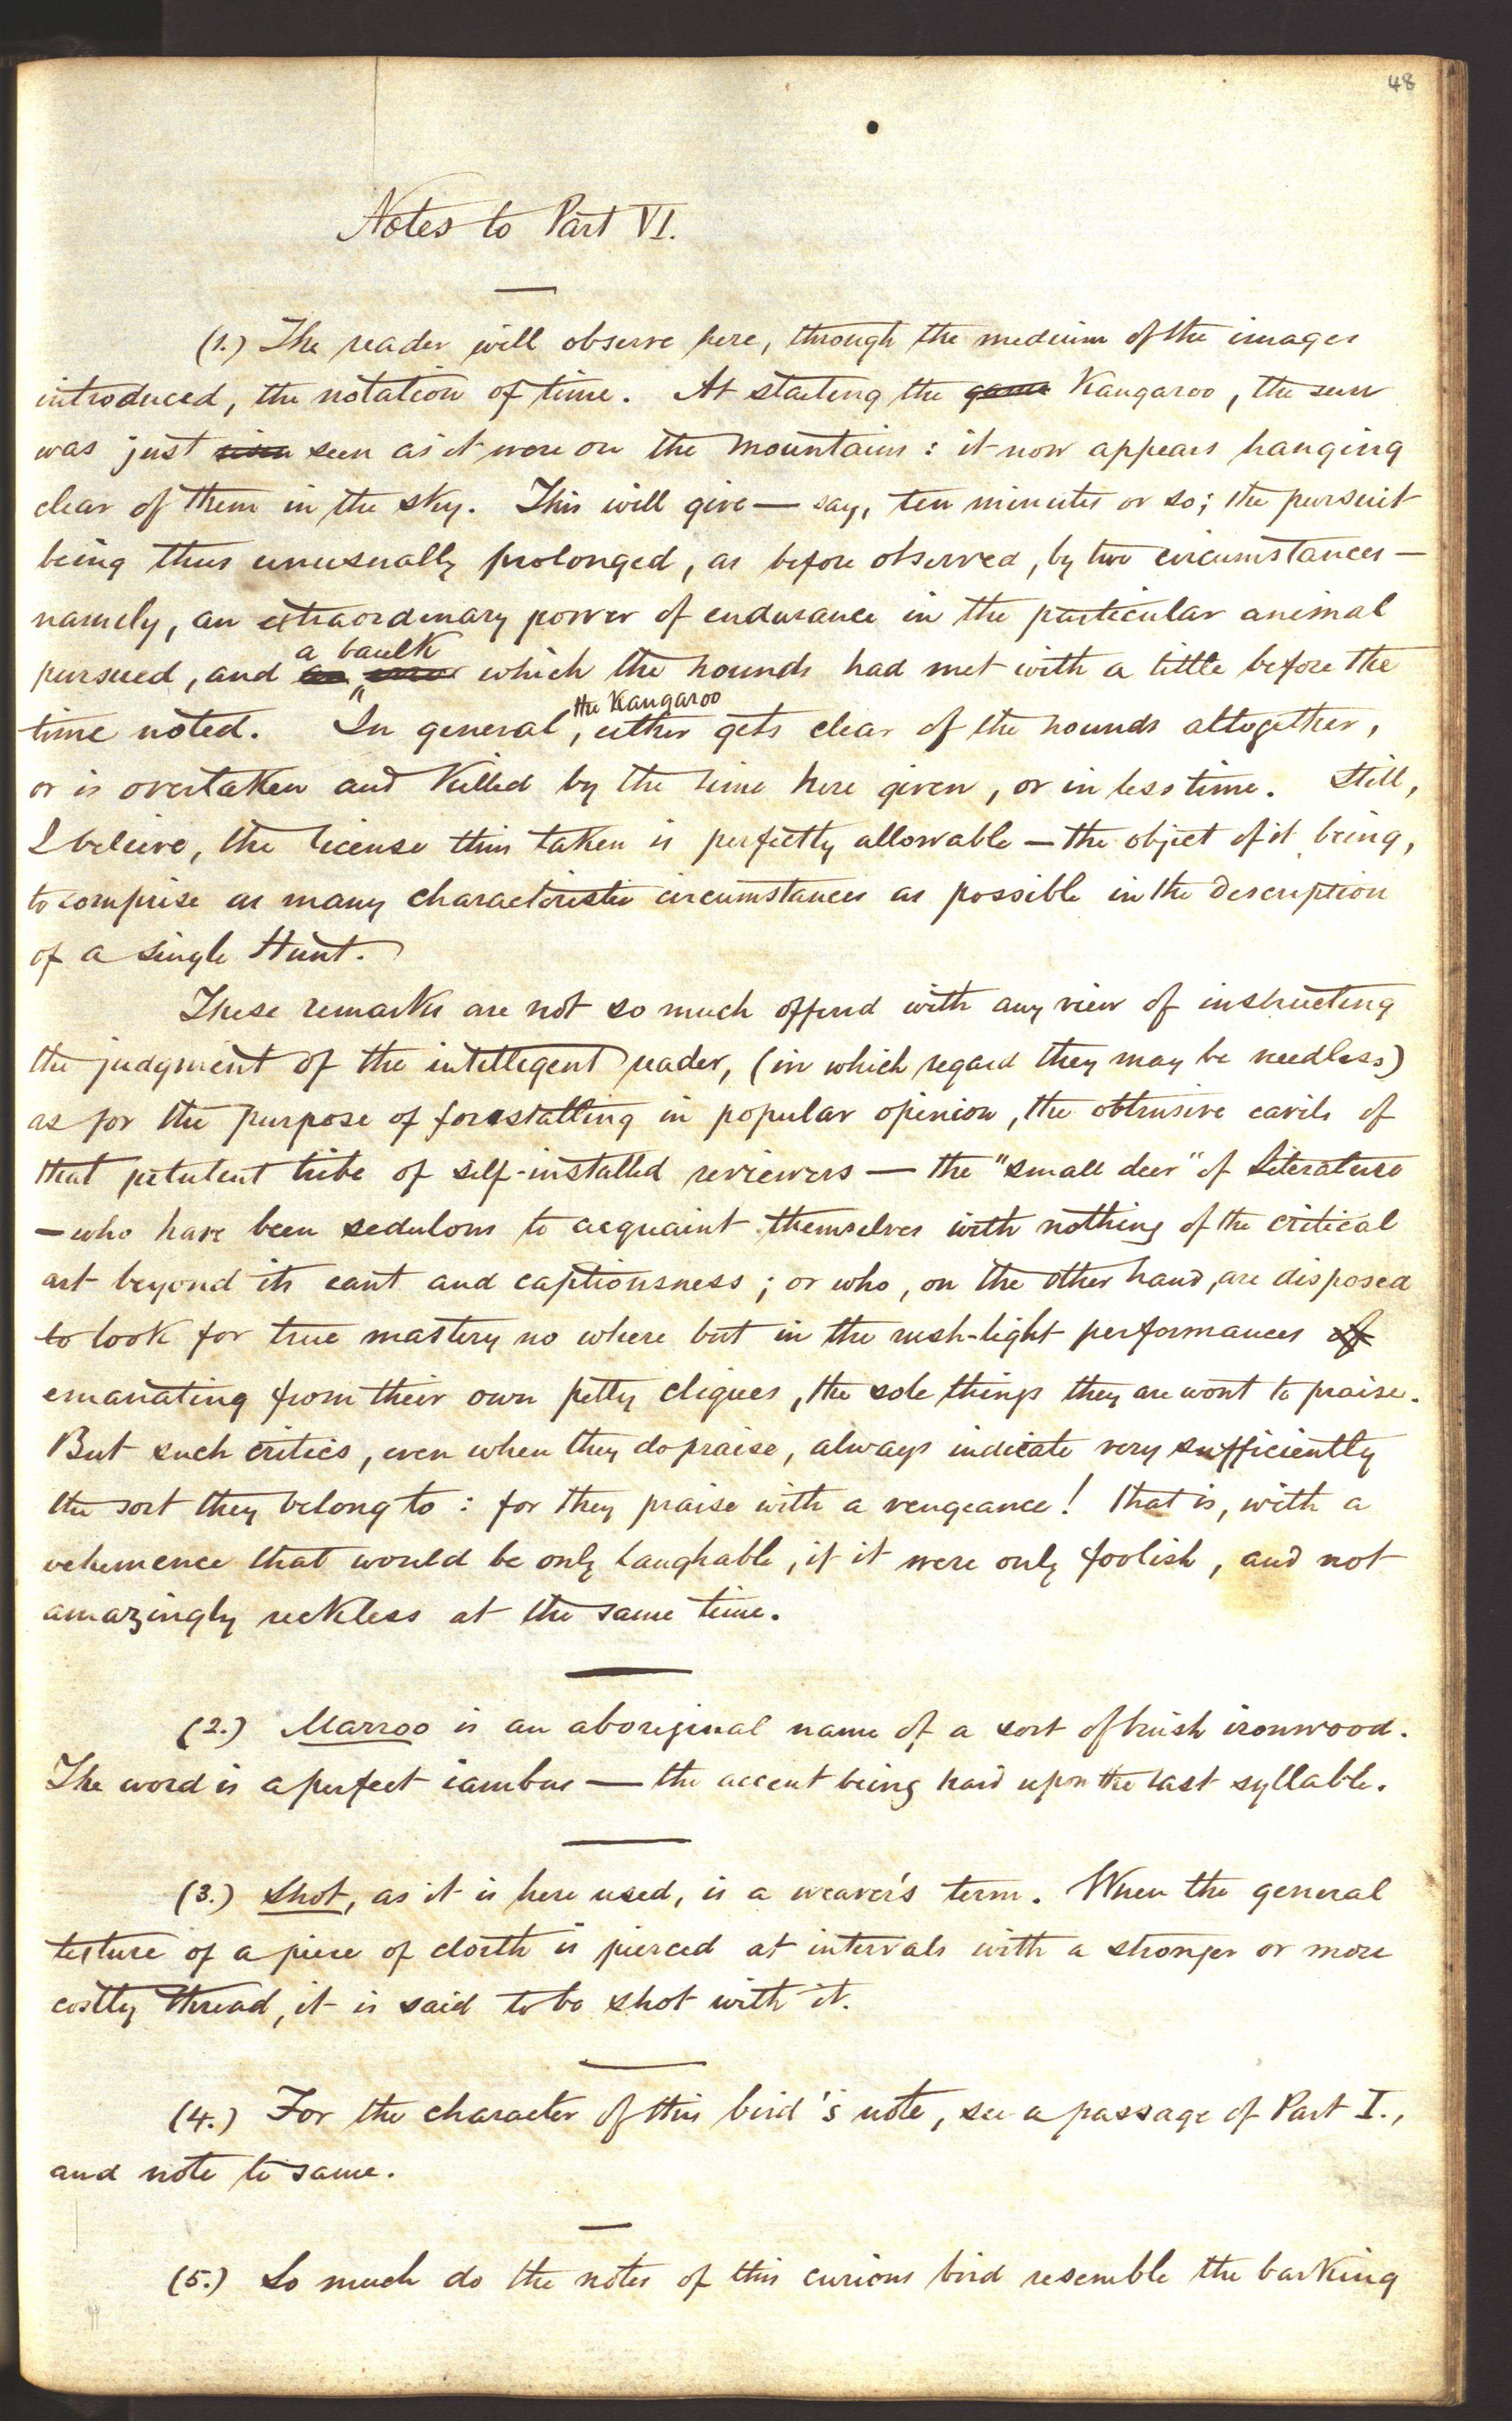 48
Notes to Part VI.
(1.) The reader will observe here, through the medium of the images
introduced, the notation of time. At starting the game Kangaroo, the sun
was just risen seen as it were on the mountains: it now appears hanging
clear of them in the sky. This will give — say, ten minutes or so; the pursuit
being thus unusually prolonged, as before observed, by two circumstances —
namely, an extraordinary power of endurance in the particular animal
a baulk
pursued, and an which the hounds had met with a little before the
the Kangaroo
time noted. In general, either gets clear of the hounds altogether,
or is overtaken and killed by the time here given, or in less time. Still,
I believe, the license thus taken is perfectly allowable — the object of it being,
to comprise as many characteristic circumstances as possible in the description
of a single Hunt.
These remarks are not so much offered with any view of instructing
the judgment of the intelligent reader, (in which regard they may be needless)
as for the purpose of forestalling in popular opinion, the obtrusive cavils of
that petulent tribe of self-installed reviewers — the "small deer" of Literature
— who have been sedulous to acquaint themselves with nothing of the critical
art beyond its cant and captiousness; or who, on the other hand, are disposed
to look for true mastery no where but in the rush-light performances of
emanating from their own petty cliques, the sole things they are wont to praise.
But such critics, even when they do praise, always indicate very sufficiently
the sort they belong to: for they praise with a vengeance! that is, with a
vehemence that would be only laughable, if it were only foolish, and not
amazingly reckless at the same time.
(2.) Marroo is an aboriginal name of a sort of brush ironwood.
The word is a perfect iambus — the accent being hard upon the last syllable.
(3.) Shot, as it is here used, is a weaver's term. When the general
texture of a piece of cloth is pierced at intervals with a stronger or more
costly thread, it is said to be shot with it.
(4.) For the character of this bird's note, see a passage of Part I.,
and note to same.
(5.) So much do the notes of this curious bird resemble the barking